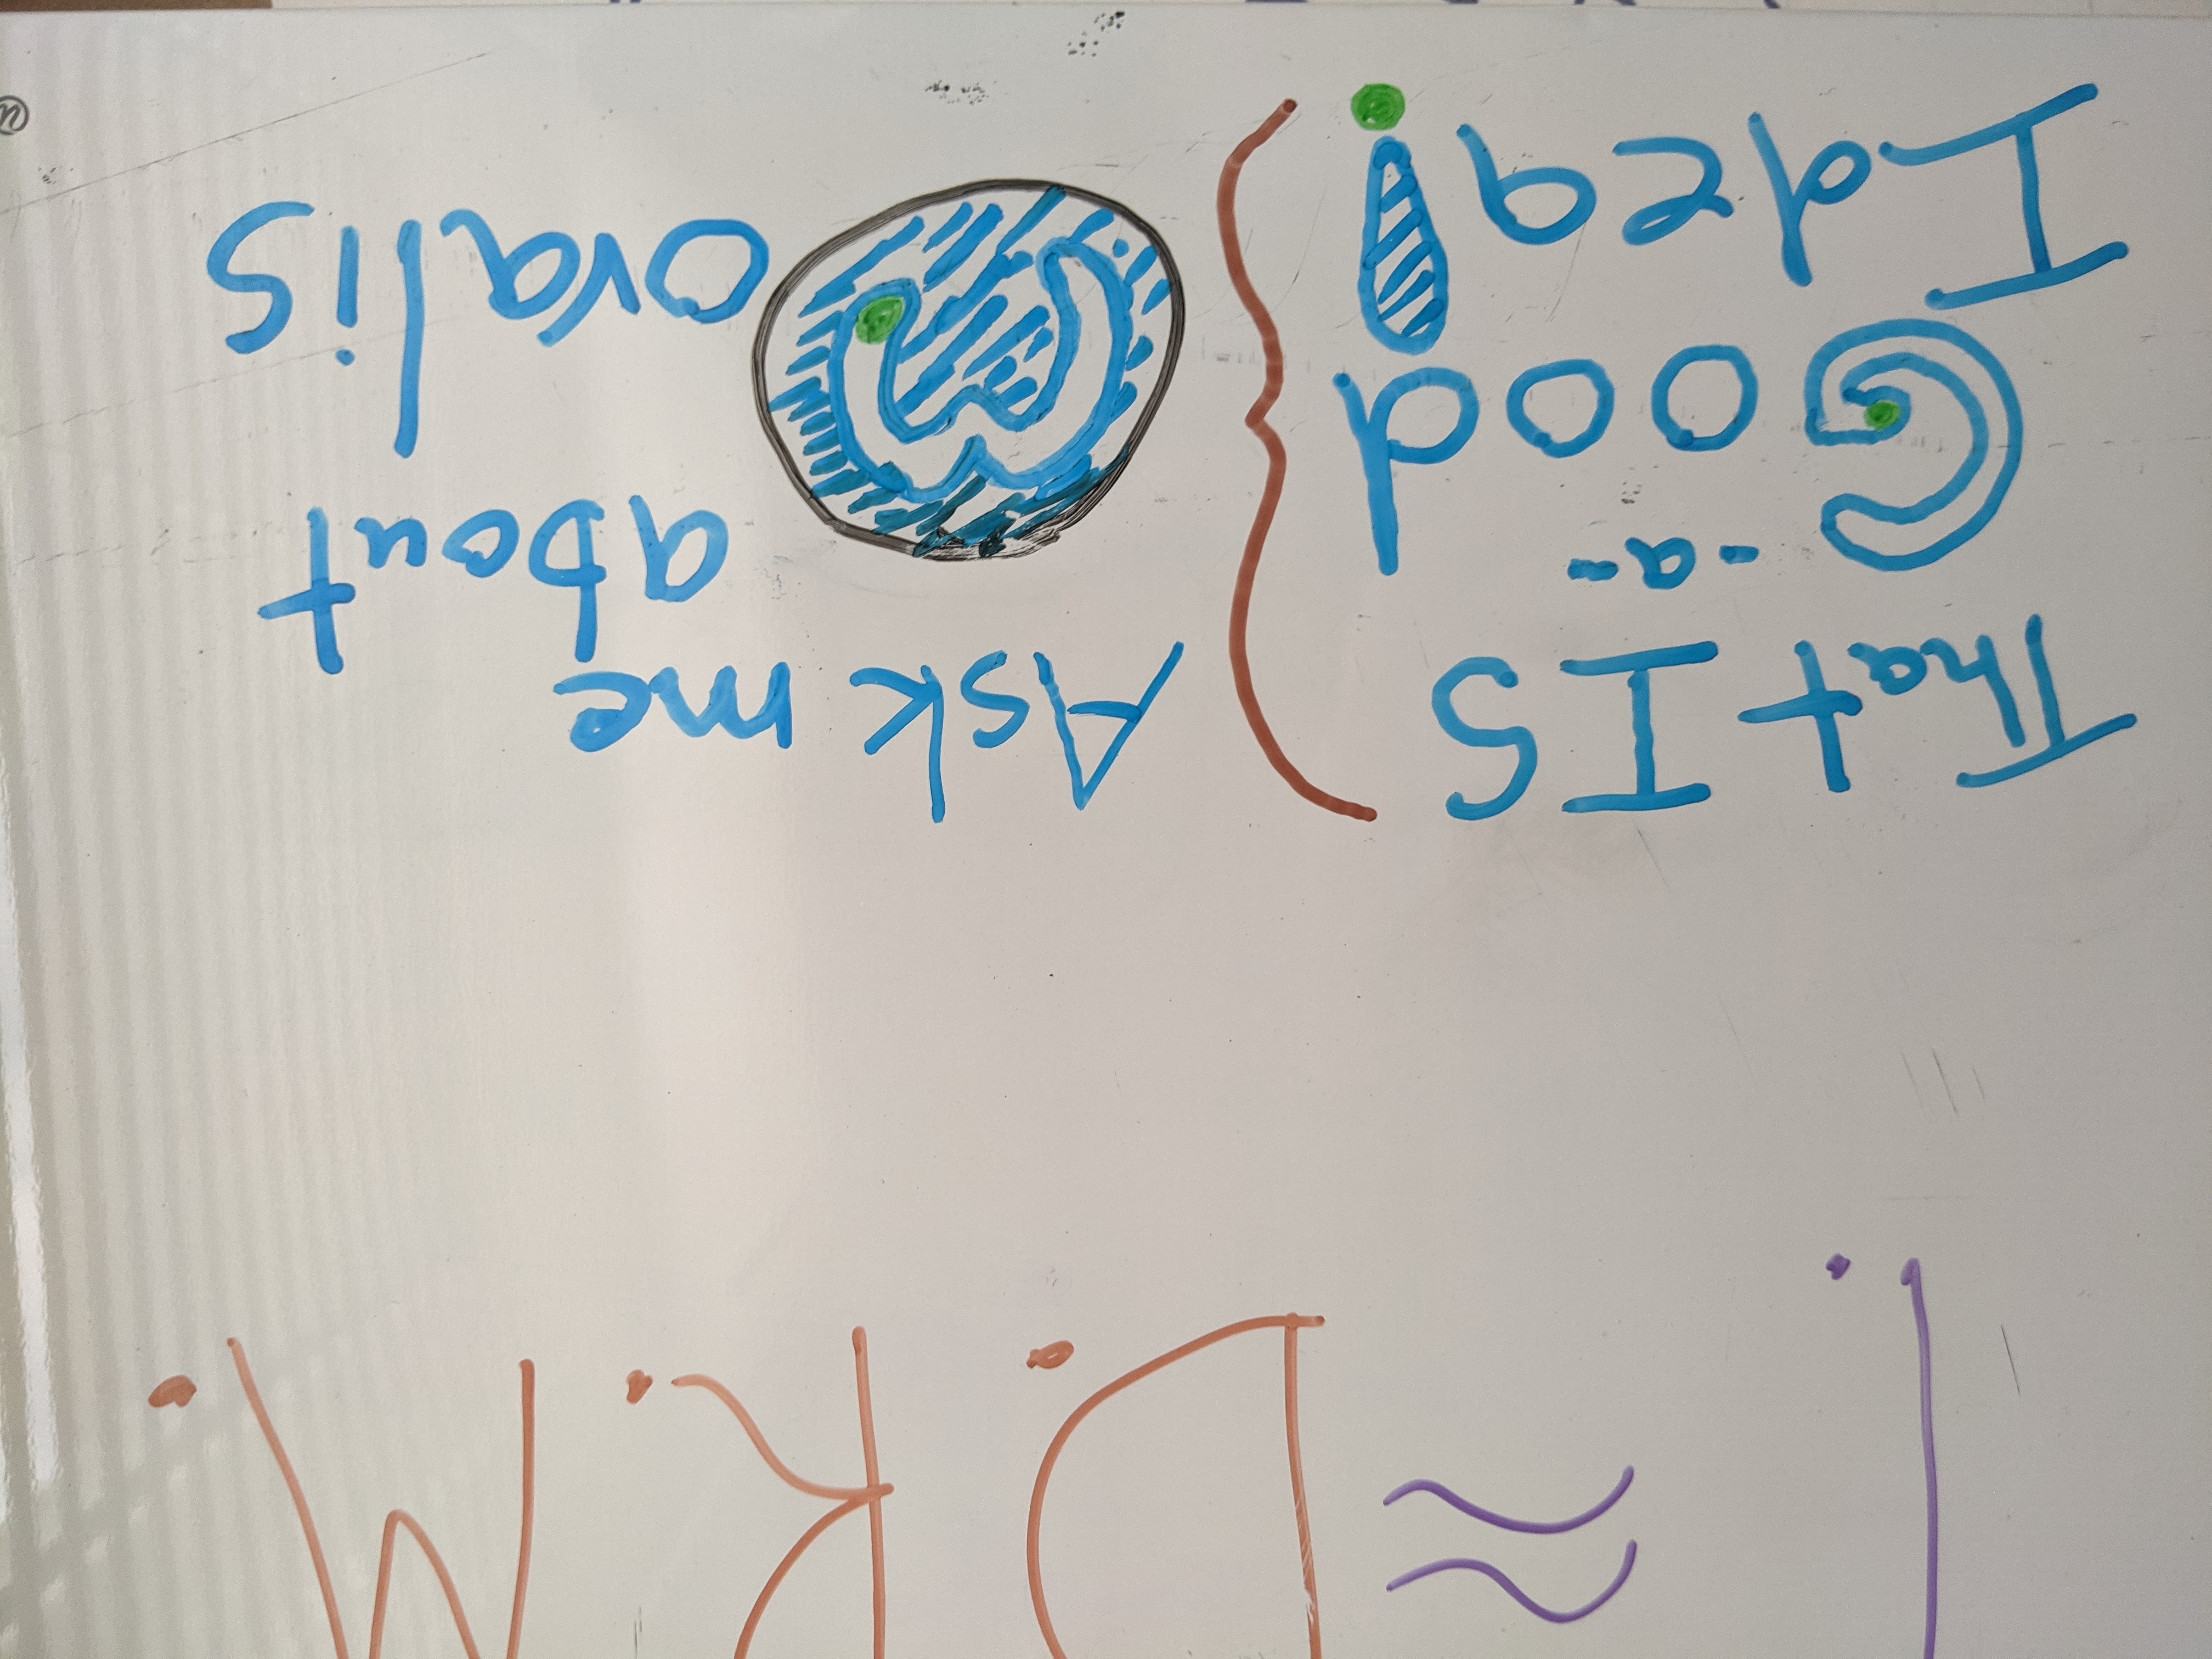 I. ≈ D.R.M.
That IS
-a-
Good
Idea!
Ask me
about
Movalis